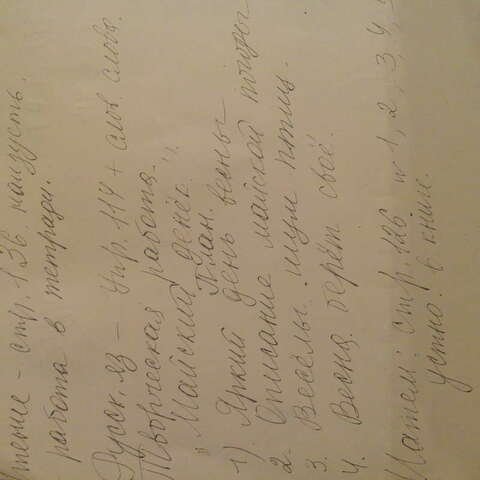 Чтение - стр. 136. наизусть.
работа в тетради.
Русск. яз - Упр. 114 + слов. слова.
Творческая работа.
"Майский денёк."
План.
1) Яркий день весны
2. Описание майской погоды
3. Весёлы шум птиц.
4. Весна берёт своё.
Матем: стр. 126 1, 2, 3, 4,
устно. в книге.